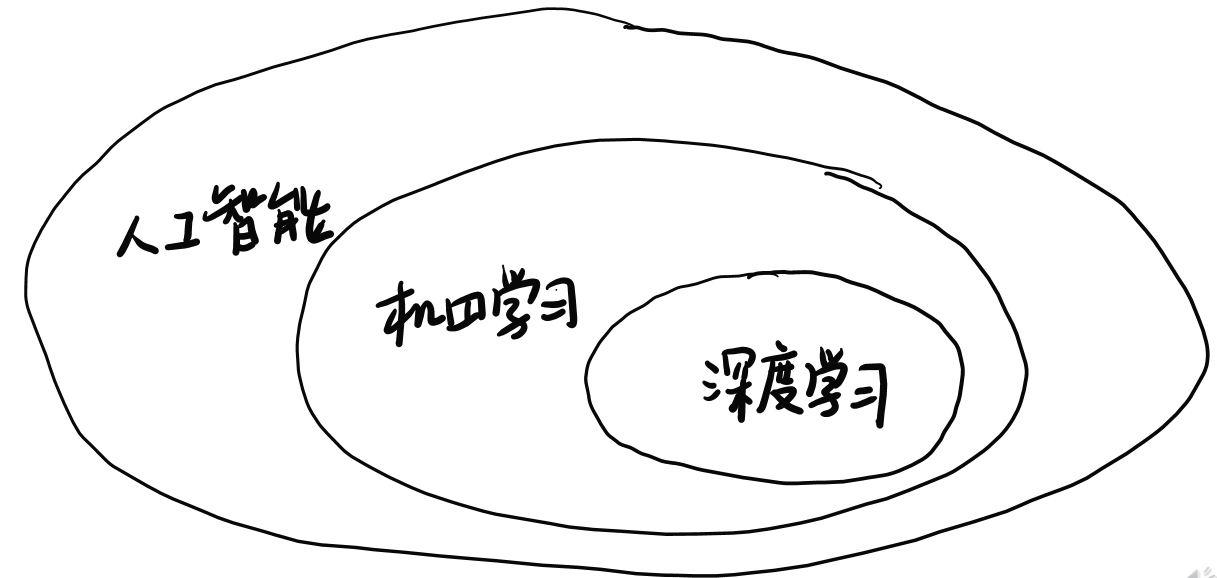 人工智能
机四学习
深度学习